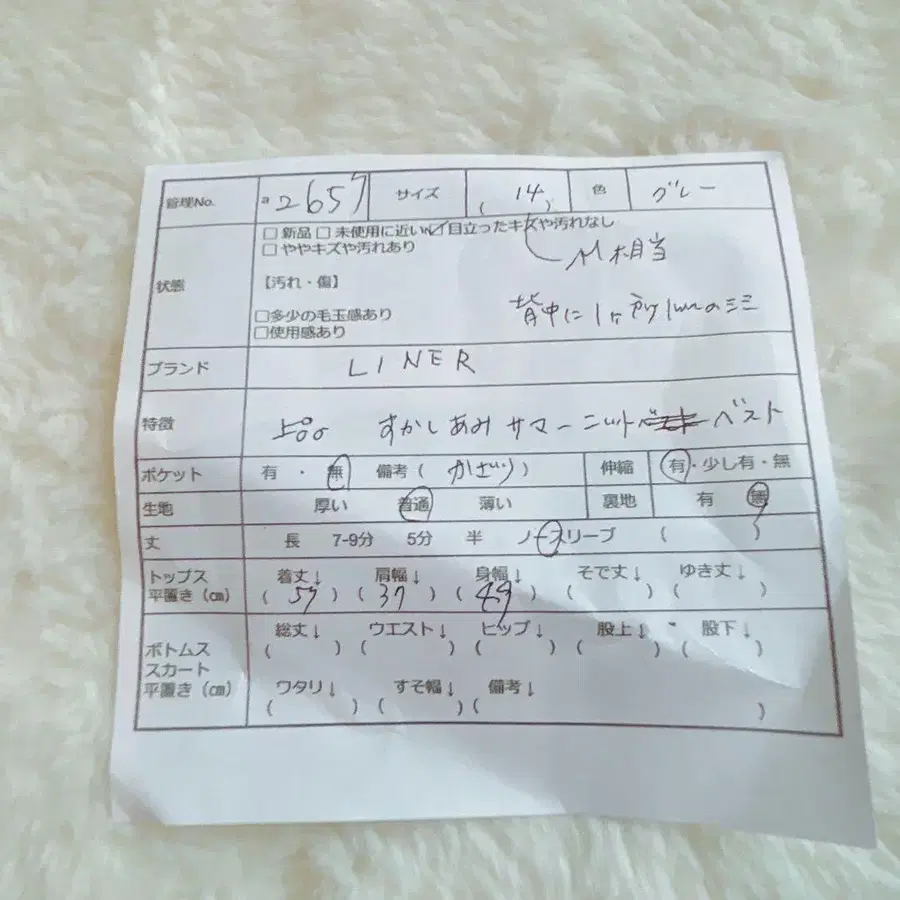 管理No. a 2657 サイズ ( 14 ) 色 グレー
□ 新品 □ 未使用に近い ☑ 目立ったキズや汚れなし
□ ややキズや汚れあり
M相当
状態 【汚れ・傷】
□多少の毛玉感あり
背中に1ヶ所1mmの
□使用感あり
ブランド LINER
特徴 すかしあみ サマーニット ベスト
ポケット 有 ・ 無 備考 ( かざり ) 伸縮 有・少し有・無
生地 厚い 普通 薄い 裏地 有 無
丈 長 7-9分 5分 半 ノースリーブ ( )
トップス 着丈↓ 肩幅↓ 身幅↓ そで丈↓ ゆき丈↓
平置き (cm) ( 57 ) ( 37 ) ( 49 ) ( ) ( )
総丈↓ ウエスト↓ ヒップ↓ 股上↓ 股下↓
ボトムス ( ) ( ) ( ) ( ) ( )
スカート
平置き (cm) ワタリ↓ すそ幅↓ 備考↓
( ) ( ) ( )